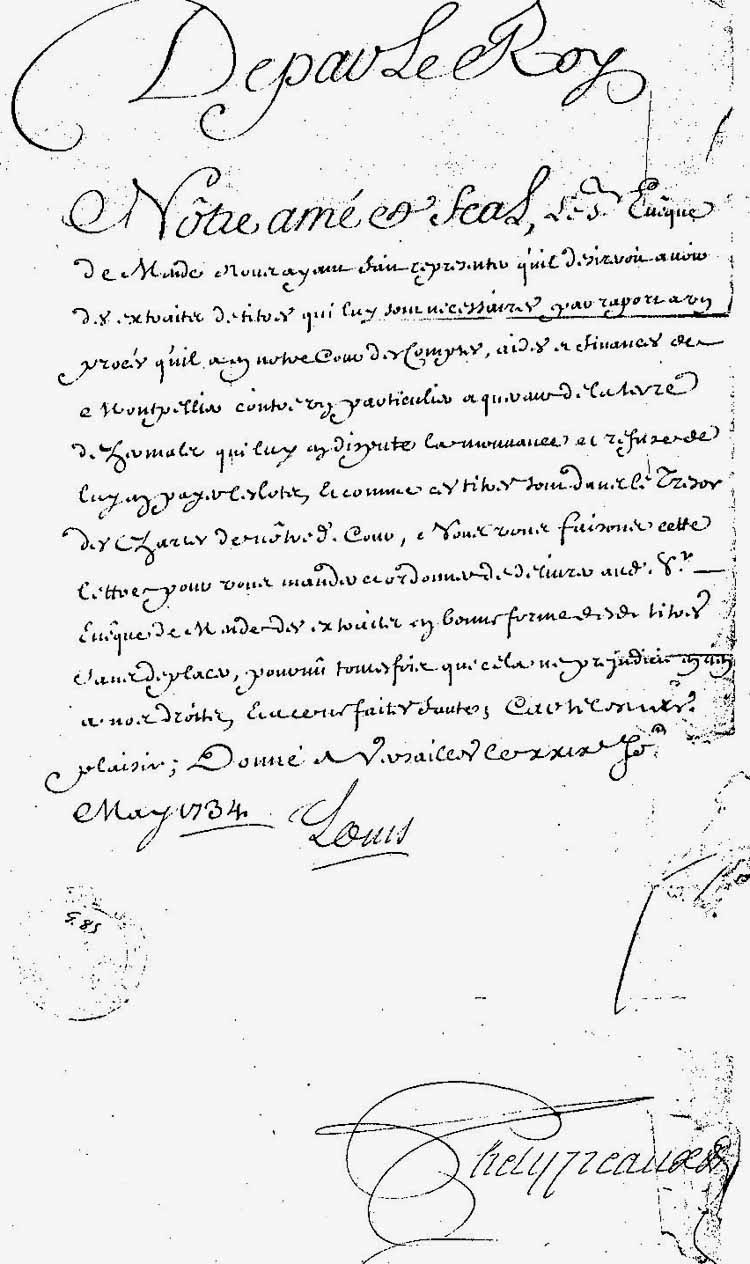 De par Le Roy
Nôtre amé et feal, Le S.r Evêque
de Mende Nous ayant fait representer qu'il desireroit avoir
des extraits de titres qui luy sont necessaires par raport a un
procés qu'il a en notre Cour des Comptes, aides et finances de
Montpellier contre un particulier acquereur de la terre
de qui luy en dispute la mouvance et refuse de
luy en payer les lots, Et comme ces titres sont dans le Tresor
des Chartes de nôtred. Cour, Nous vous faisons cette
lettre pour vous mander et ordonner de delivrer aud. S.r
Evêque de Mende des extraits en bonne forme desd. titres
sans deplacer, pourvû toutesfois que cela ne prejudicie en rien
a nos droits, Et a ce ne faites faute; Car tel est n.re
plaisir; Donné a Versailles le xxix.e
May 1734. Louis
G. 85
Phelypeaux